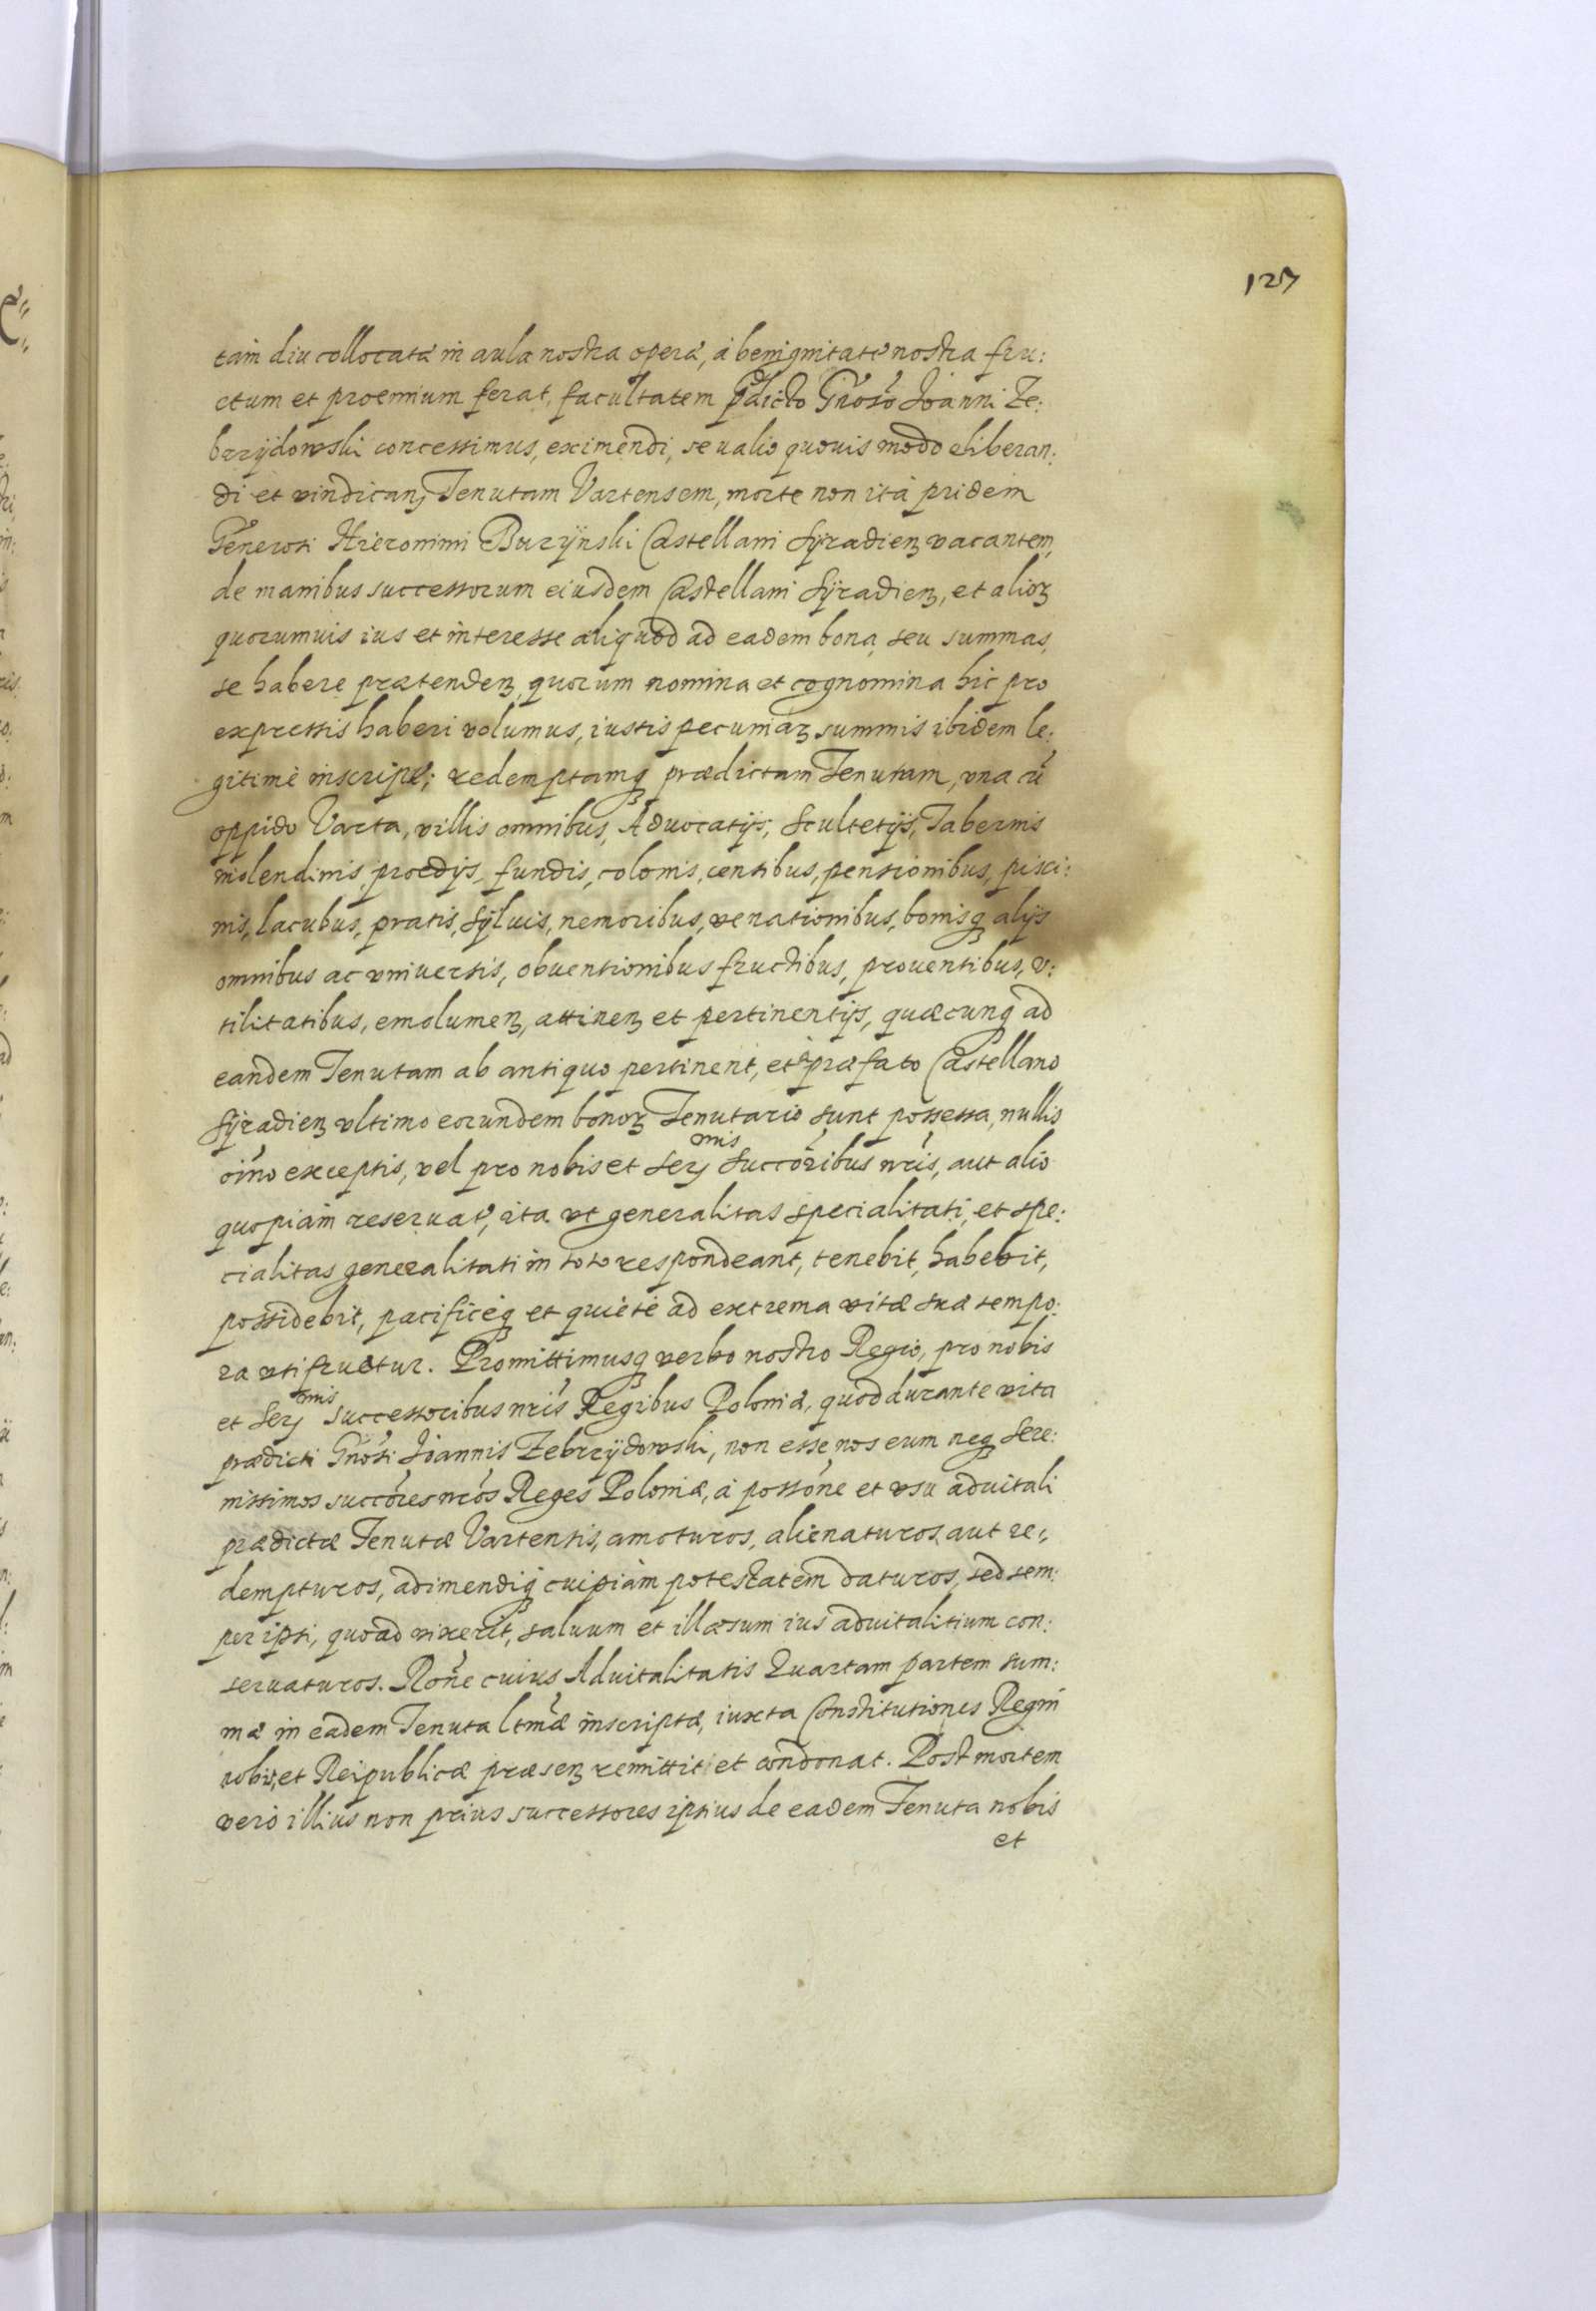 127
tam diu collocatæ in aula nostra operæ, à benignitate nostra fru:
ctum et proemium ferat, facultatem pdicto Gnoso Joanni Ze:
brzÿdowski concessimus, eximendi, seu alio quouis modo eliberan:
di et vindicanj Tenutam Vartensem, morte non ità pridem
Generosi Hieronimi Buzÿnski Castellani Sÿradienȝ vacantem,
de manibus successorum eiusdem Castellani Sÿradienȝ, et alioȝ
quorumuis ius et interesse aliquod ad eadem bona, seu summas,
se habere prætendenȝ, quorum nomina et cognomina hic pro
expressis haberi volumus, iustis pecuniaȝ summis ibidem le:
gitimè inscript; redemptamqȝ prædictam Tenutam, vna cũ
oppido Varta, villis omnibus, Aduocatÿs, Scultetÿs, Tabernis
molendinis, proedÿs, fundis, colonis, censibus, pensionibus, pisci:
nis, lacubus, pratis, Sÿluis, nemoribus, venationibus, bonisqȝ alÿs
omnibus ac vniuersis, obuentionibus fructibus, prouentibus, v:
tilitatibus, emolumenȝ, attinenȝ et pertinentÿs, quæcunqȝ ad
eandem Tenutam ab antiquo pertinent, et à præfato Castellano
Sÿradienȝ vltimo eorundem bonoȝ Tenutario sunt possessa, nullis
oĩno exceptis, vel pro nobis et Serj^mis Succõribus nr̃is, aut alio
quopiam reseruat, ita vt generalitas specialitati, et spe:
cialitas generalitati in toto respondeant, tenebit, habebit,
possidebit, pacificèqȝ et quietè ad extrema vitæ suæ tempo:
ra vtifruetur. Promittimusqȝ verbo nostro Regio, pro nobis
et Serj^mis successoribus nr̃is Regibus Poloniæ, quod durante vita
prædicti Gnosi Joannis Zebrzÿdowski, non esse nos eum neqȝ Sere:
nissimos succõres nr̃os Reges Poloniæ, à possõne et vsu aduitali
prædictæ Tenutæ Vartensis, amoturos, alienaturos, aut re:
dempturos, adimendiqȝ cuipiàm potestatem daturos, sed sem:
per ipsi, quoad vixerit, saluum et illæsum ius aduitalitium con:
seruaturos. Rõne cuius Aduitalitatis Quartam partem sum:
mæ in eadem Tenuta ltmæ inscriptæ, iuxta Constitutiones Regni
nobis, et Reipublicæ præsenȝ remittit et condonat. Post mortem
verò illius non prius successores ipsius de eadem Tenuta nobis
et